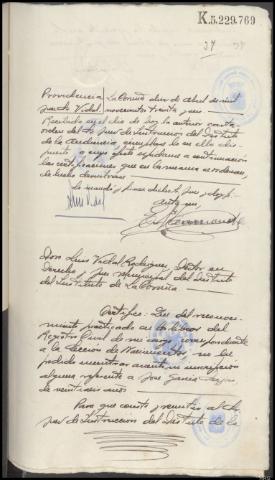 K.5.229.769
37
Providencia La Coruña diez de abril de mil
Juez Sr Vidal novecientos treinta y seis
Recibida en el dia de hoy la anterior carta
orden del Sr Juez de Instruccion del Distrito
de la Audiencia cumplase lo en ella dis-
puesto a cuyo efecto expidanse a continuación
las certificaciones que en la misma se ordenan,
Lo mandó y firma dicho Sr Juez, doy fe
Ante mi,
Don Luis Vidal Rodriguez, Doctor en
Derecho y Juez Municipal del Distrito
del Instituto de La Coruña
Certifico: Que del recono-
cimiento practicado en los libros del
Registro Civil de mi cargo correspondiente
a la Seccion de Nacimientos, no ha
podido encontrarse inscripcion
alguna referente a Jose Garcia
de veintiun años
Para que conste y remitir al Sr
Juez de Instruccion del Distrito de la